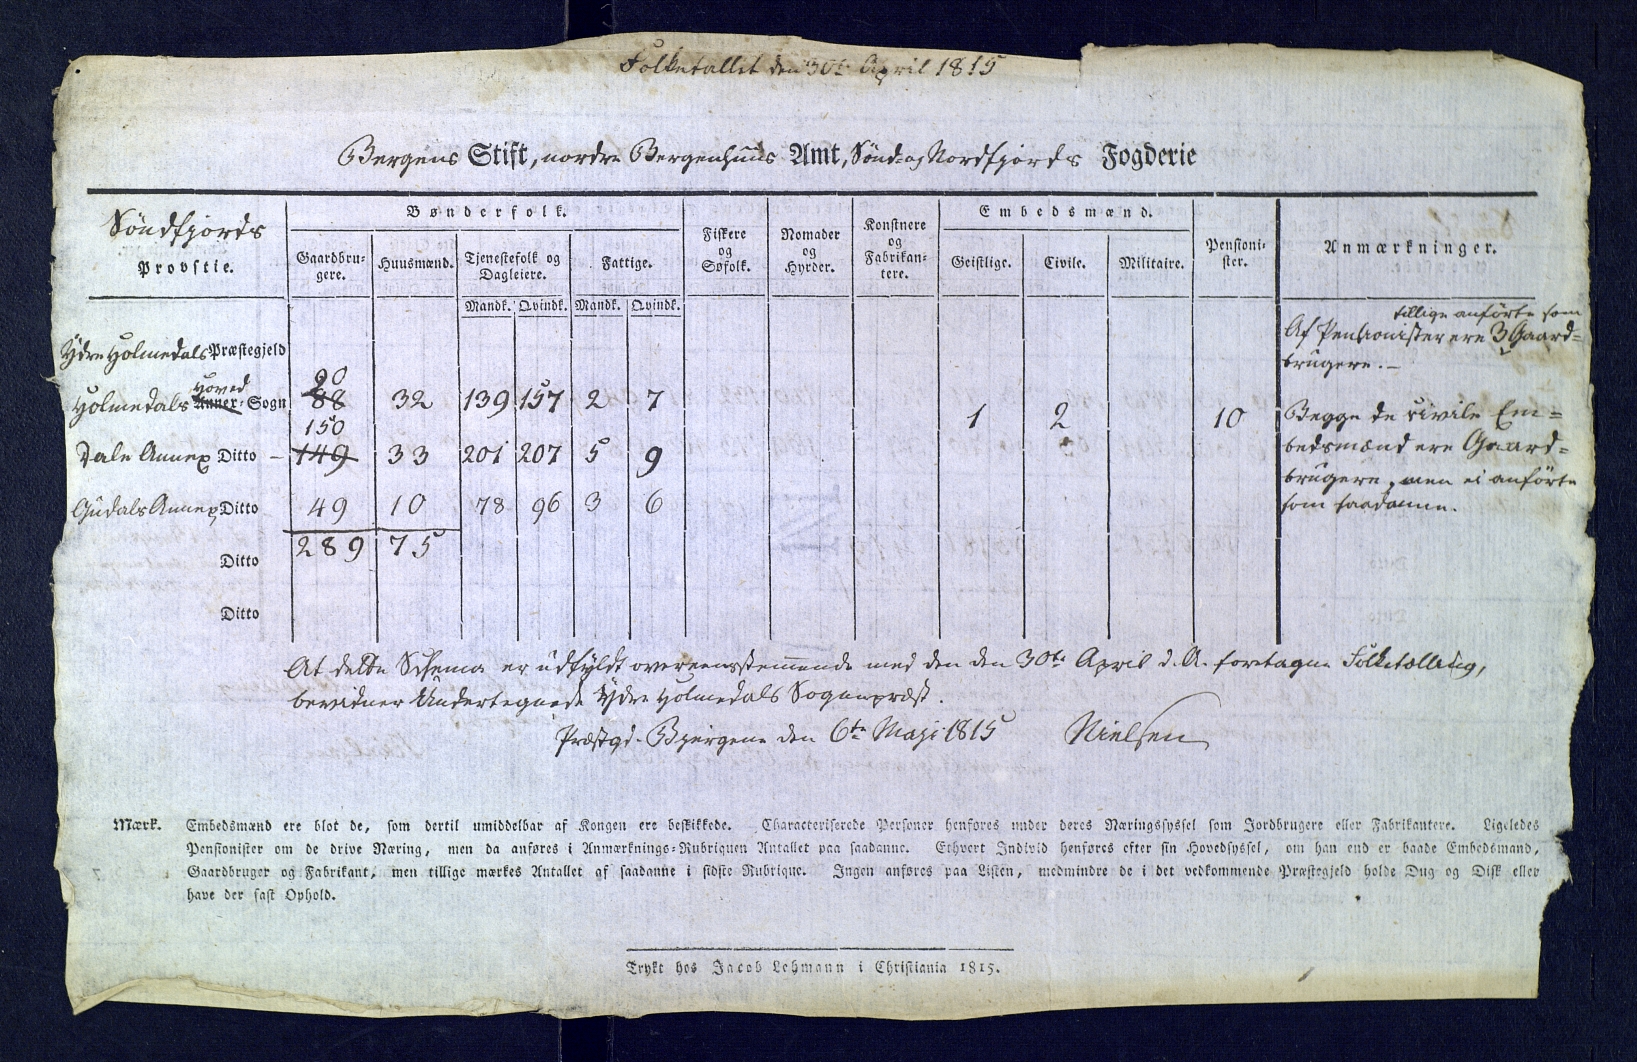 Folketallet den 30te April 1815
Bergens Stift, nordre Bergenhuus Amt, Sønd- og Nordfjords Fogderie
Søndfjords
Provstie.
Bønderfolk.
Gaardbru-
gere.
Huusmænd.
Tjenestefolk og
Dagleiere.
Fattige.
Mandk. Qvindk. Mandk. Qvindk.
Fiskere
og
Søfolk.
Nomader
og
Hyrder.
Konstnere
og
Fabrikan-
tere.
Embedsmænd.
Geistlige. Civile. Militaire.
Pensioni-
ster.
Anmærkninger.
Ydre Holmedals Præstegjeld
Hoved 90
Holmedals Annex-Sogn 88 32 139 157 2 7 1 2 10
150
Dale Annex Ditto – 149 33 201 207 5 9
Gudals Annex Ditto 49 10 78 96 3 6
289 75
Ditto
Ditto
tillige anførte som
Af Pensionister ere 3 Gaard=
brugere. –
Begge de civile Em=
bedsmænd ere Gaard=
brugere, men ei anførte
som saadanne.
At dette Schema er udfyldt overeensstemmende med den den 30te April d. A. foretagne Folketælling,
bevidner Undertegnede Ydre Holmedals Sognepræst.
Præstgd. Bjergene den 6te Maji 1815 Nielsen
Mærk. Embedsmænd ere blot de, som dertil umiddelbar af Kongen ere beskikkede. Characteriserede Personer henføres under deres Næringssyssel som Jordbrugere eller Fabrikantere. Ligeledes
Pensionister om de drive Næring, men da anføres i Anmærknings-Rubriquen Antallet paa saadanne. Ethvert Individ henføres efter sin Hovedsyssel, om han end er baade Embedsmand,
Gaardbruger og Fabrikant, men tillige mærkes Antallet af saadanne i sidste Rubrique. Ingen anføres paa Listen, medmindre de i det vedkommende Præstegjeld holde Dug og Disk eller
have der fast Ophold.
Trykt hos Jacob Lehmann i Christiania 1815.